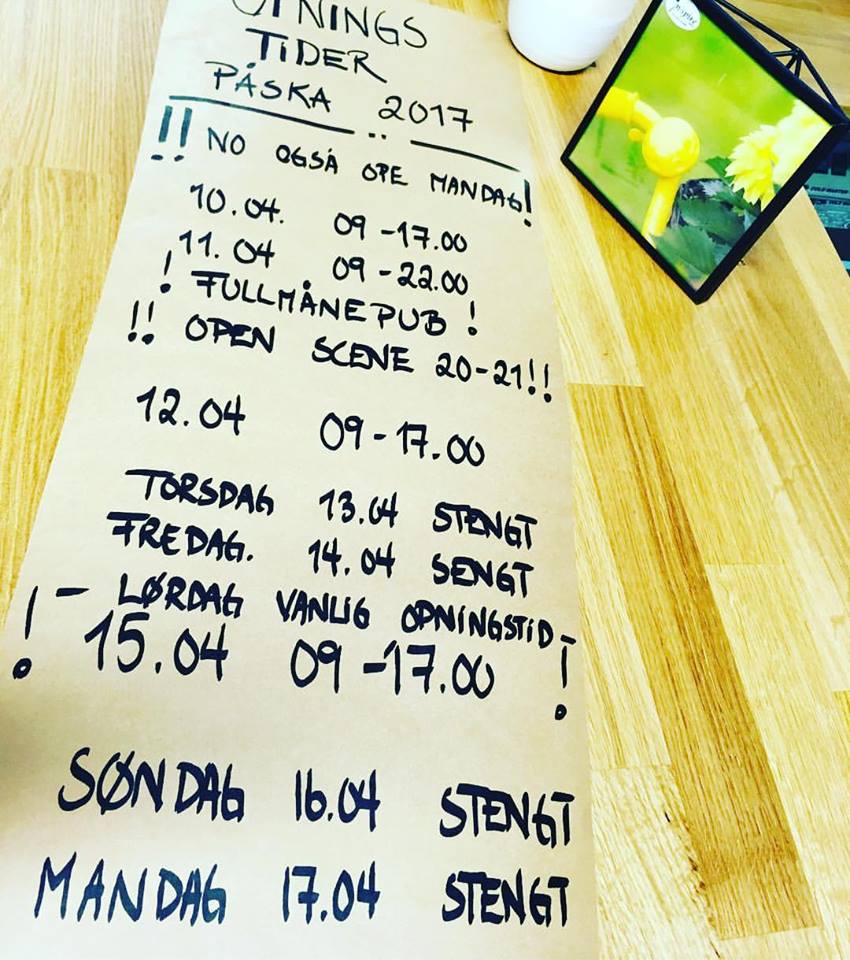 OPNINGS
TIDER
PÅSKA 2017
!! NO OGSÅ OPE MANDAG!
10.04. 09-17.00
11.04 09-22.00
! FULLMÅNEPUB !
!! OPEN SCENE 20-21!!
12.04 09-17.00
TORSDAG 13.04 STENGT
FREDAG. 14.04 SENGT
! - LØRDAG VANLIG OPNINGSTID - !
15.04 09-17.00
SØNDAG 16.04 STENGT
MANDAG 17.04 STENGT